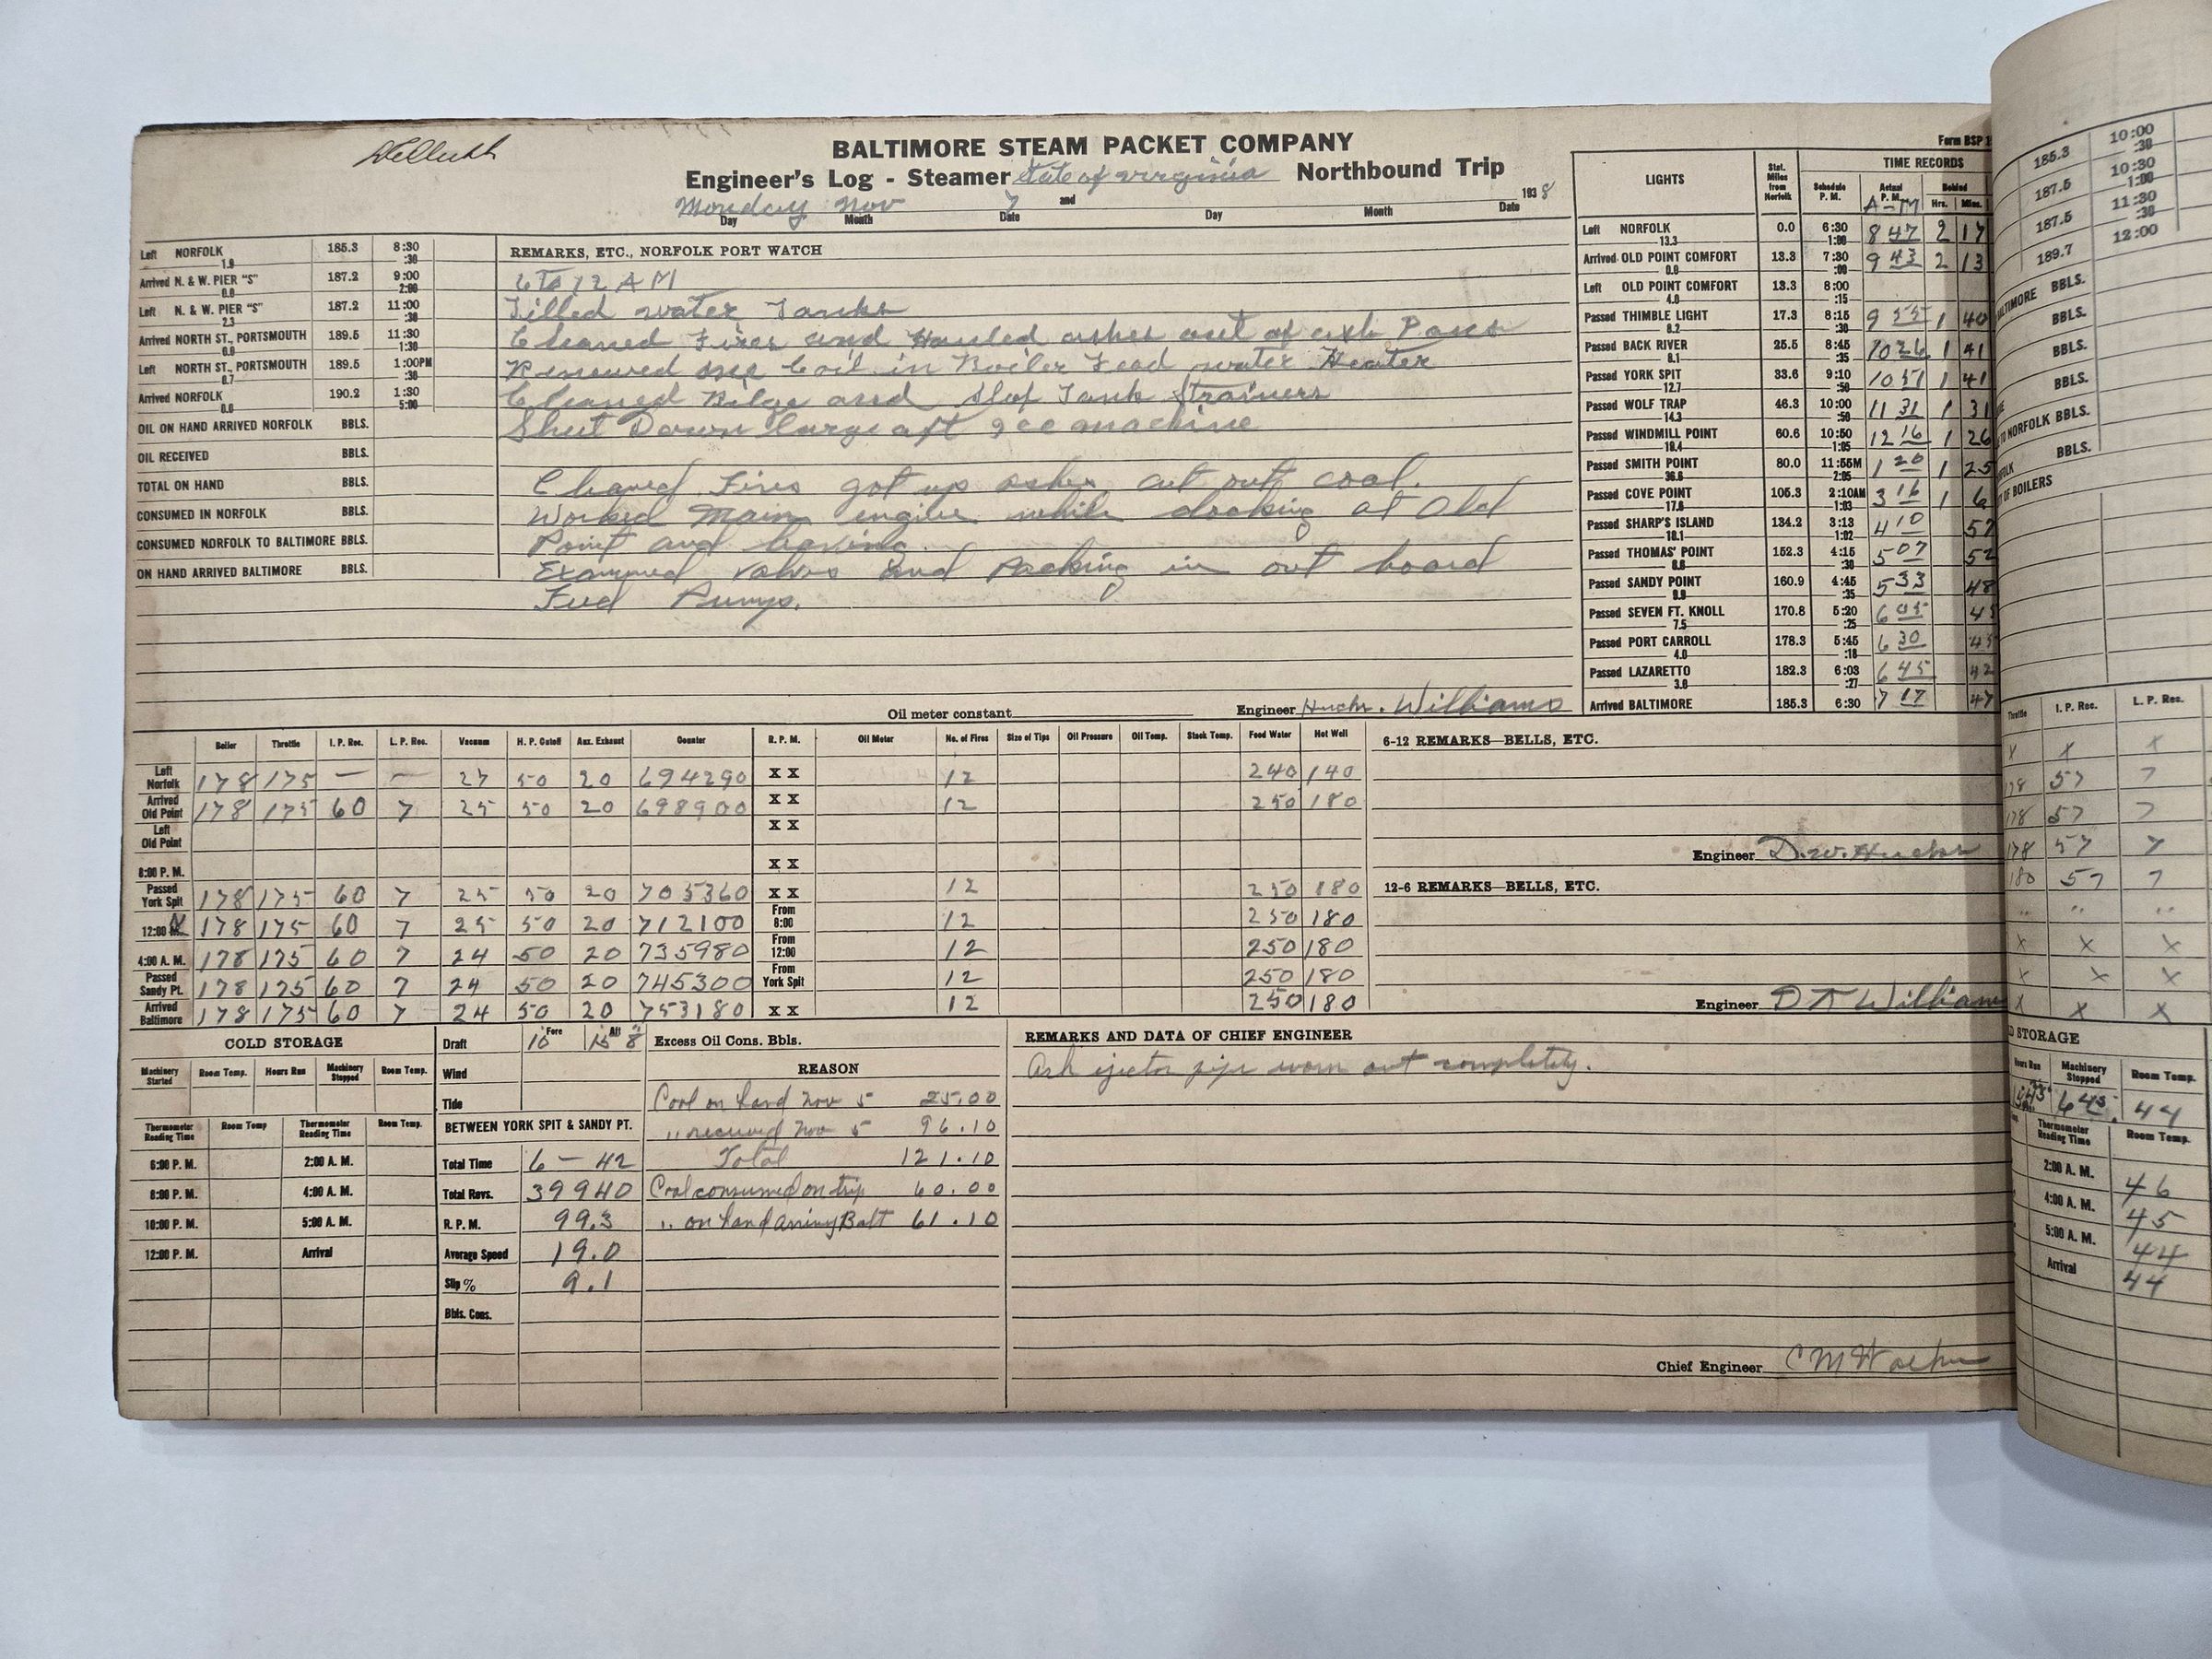 BALTIMORE STEAM PACKET COMPANY
Engineer's Log - Steamer State of Virginia Northbound Trip
Monday Nov 7 and 1938
Day Month Date Day Month Date
Form BSP
Left NORFOLK 185.3 8:30
1.9 :30
Arrived N. & W. PIER "S" 187.2 9:00
0.0 2:00
Left N. & W. PIER "S" 187.2 11:00
2.3 :30
Arrived NORTH ST., PORTSMOUTH 189.5 11:30
0.0 1:30
Left NORTH ST., PORTSMOUTH 189.5 1:00PM
0.7 :30
Arrived NORFOLK 190.2 1:30
0.0 5:00
OIL ON HAND ARRIVED NORFOLK BBLS.
OIL RECEIVED BBLS.
TOTAL ON HAND BBLS.
CONSUMED IN NORFOLK BBLS.
CONSUMED NORFOLK TO BALTIMORE BBLS.
ON HAND ARRIVED BALTIMORE BBLS.
REMARKS, ETC., NORFOLK PORT WATCH
6 To 12 A M
Filled water Tanks
Cleaned Fires and Hauled ashes out of ash Pans
Renewed one Coil in Boiler Feed water Heater
Cleaned Bilge and Slop Tank Strainers
Shut Down large aft ice machine
Cleaned Fires got up ashes cut out coal.
Worked Main engine while docking at Old
Point and leaving.
Examined valves and Packing in out board
Feed Pumps.
Oil meter constant
Engineer Hucks. Williams
LIGHTS Stat. Miles from Norfolk TIME RECORDS
Schedule P. M. Actual P. M. A-M Behind Hrs. Mins.
Left NORFOLK 0.0 6:30 8 47 2 17
13.3 1:00
Arrived OLD POINT COMFORT 13.3 7:30 9 43 2 13
0.0 :00
Left OLD POINT COMFORT 13.3 8:00
4.0 :15
Passed THIMBLE LIGHT 17.3 8:15 9 55 1 40
8.2 :30
Passed BACK RIVER 25.5 8:45 10 26 1 41
8.1 :35
Passed YORK SPIT 33.6 9:10 10 51 1 41
12.7 :50
Passed WOLF TRAP 46.3 10:00 11 31 1 31
14.3 :50
Passed WINDMILL POINT 60.6 10:50 12 16 1 26
19.4 1:05
Passed SMITH POINT 80.0 11:55M 1 20 1 25
36.6 2:05
Passed COVE POINT 105.3 2:10AM 3 16 1 6
17.6 1:03
Passed SHARP'S ISLAND 134.2 3:13 4 10 57
18.1 1:02
Passed THOMAS' POINT 152.3 4:15 5 07 52
8.6 :30
Passed SANDY POINT 160.9 4:45 5 33 48
9.9 :35
Passed SEVEN FT. KNOLL 170.8 5:20 6 05 45
7.5 :25
Passed PORT CARROLL 178.3 5:45 6 30 45
4.0 :18
Passed LAZARETTO 182.3 6:03 6 45 42
3.0 :27
Arrived BALTIMORE 185.3 6:30 7 17 47
Boiler Throttle I. P. Rec. L. P. Rec. Vacuum H. P. Cutoff Aux. Exhaust Counter R. P. M. Oil Meter No. of Fires Size of Tips Oil Pressure Oil Temp. Stack Temp. Feed Water Hot Well
Left Norfolk 178 175 — — 27 50 20 694290 X X 12 240 140
Arrived Old Point 178 175 60 7 25 50 20 698900 X X 12 250 180
Left Old Point X X
8:00 P. M. X X
Passed York Spit 178 175 60 7 25 50 20 705360 X X 12 250 180
12:00 178 175 60 7 25 50 20 712100 From 8:00 12 250 180
4:00 A. M. 178 175 60 7 24 50 20 735980 From 12:00 12 250 180
Passed Sandy Pt. 178 175 60 7 24 50 20 745300 From York Spit 12 250 180
Arrived Baltimore 178 175 60 7 24 50 20 753180 X X 12 250 180
6-12 REMARKS—BELLS, ETC.
Engineer D.W. Hucks
12-6 REMARKS—BELLS, ETC.
Engineer D T Williams
COLD STORAGE
Machinery Started Room Temp. Hours Run Machinery Stopped Room Temp.
Thermometer Reading Time Room Temp Thermometer Reading Time Room Temp.
6:00 P. M. 2:00 A. M.
8:00 P. M. 4:00 A. M.
10:00 P. M. 5:00 A. M.
12:00 P. M. Arrival
Draft Fore Aft
Wind
Tide
BETWEEN YORK SPIT & SANDY PT.
Total Time 6 — 42
Total Revs. 39940
R. P. M. 99.3
Average Speed 19.0
Slip % 9.1
Bbls. Cons.
Excess Oil Cons. Bbls.
REASON
Coal on hand Nov 5 25.00
" received Nov 5 96.10
Total 121.10
Coal consumed on trip 60.00
" on hand arriving Balt 61.10
REMARKS AND DATA OF CHIEF ENGINEER
Ash ejector pipe worn out completely.
Chief Engineer
185.3 10:00
:30
187.5 10:30
1:00
187.5 11:30
:30
189.7 12:00
BALTIMORE BBLS.
BBLS.
BBLS.
BBLS.
TO NORFOLK BBLS.
BBLS.
OF BOILERS
Throttle I. P. Rec. L. P. Rec.
X X X
178 57 7
178 57 7
178 57 7
180 57 7
" " "
X X X
X X X
X X X
STORAGE
Hours Run Machinery Stopped Room Temp.
6 45 44
Thermometer Reading Time Room Temp.
2:00 A. M. 46
4:00 A. M. 45
5:00 A. M. 44
Arrival 44